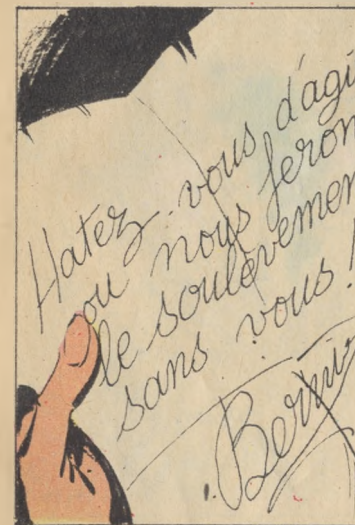 Hatez-vous d'agi
ou nous feron
le soulèvemen
sans vous !